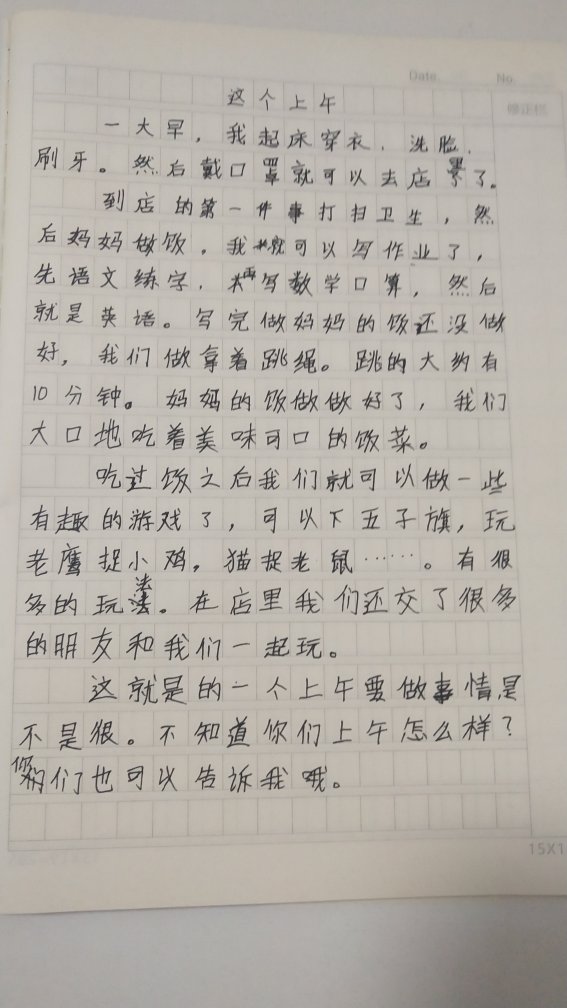 Date.
No.
修正栏
这个上午
一大早，我起床穿衣、洗脸、
刷牙。然后戴口罩就可以去店了。
到店的第一件事打扫卫生，然
后妈妈做饭。我就可以写作业了，
先语文练字，再写数学口算，然后
就是英语。写完做妈妈的饭还没做
好，我们做拿着跳绳。跳的大约有
10分钟。妈妈的饭做做好了，我们
大口地吃着美味可口的饭菜。
吃过饭之后我们就可以做一些
有趣的游戏了，可以下五子旗，玩
老鹰捉小鸡，猫捉老鼠……。有很
多的玩法。在店里我们还交了很多
的朋友和我们一起玩。
这就是的一个上午要做事情是
不是很。不知道你们上午怎么样？
你们也可以告诉我哦。